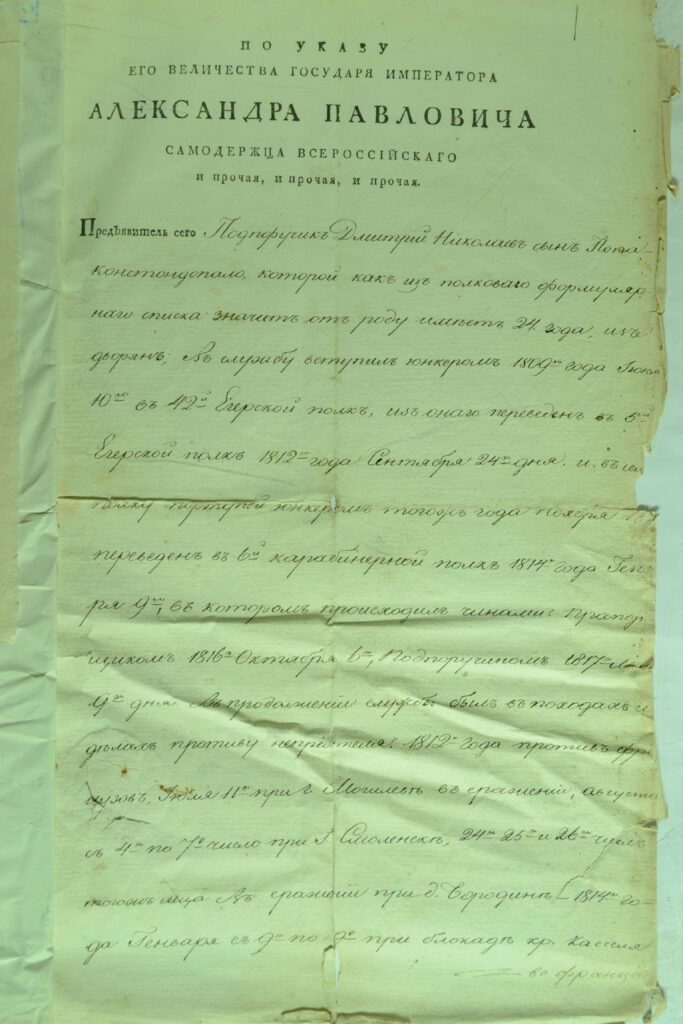 ПО УКАЗУ
ЕГО ВЕЛИЧЕСТВА ГОСУДАРЯ ИМПЕРАТОРА
АЛЕКСАНДРА ПАВЛОВИЧА
САМОДЕРЖЦА ВСЕРОССІЙСКАГО
и прочая, и прочая, и прочая.
Предъявитель сего Подпоручикъ Дмитрий Николаевъ сынъ Папа-
констондопало, которой какъ изъ полковаго формуляр
наго списка значитъ отъ роду имѣетъ 24. года, изъ
дворянъ; Въ службу вступилъ юнкеромъ 1809го года Июня
10го въ 42й Егерской полкъ, изъ онаго переведенъ въ 5й
Егерской полкъ 1812го года Сентября 24го дня, и въ сем
полку портупей юнкеромъ тогожъ года ноября
переведенъ въ 6й карабинерной полкъ 1814го года Генва
ря 9го, въ которомъ происходилъ чинами: Прапор
щикомъ 1816го Октября 6го, Подпоручикомъ 1817го
9го дня Въ продолжении службы былъ въ походахъ и
дѣлахъ противу неприятеля: 1812го года противъ фран
цузовъ, Июля 11го при г. Могилевѣ въ сражении, августа
съ 4го по 7е число при г. Смоленскѣ, 24го 25го и 26го чиселъ
тогожъ м͠ца Въ сражении при д. Бородинѣ. 1814го го-
да Генваря съ 9го по при блокадѣ кр. Касселя
во франции